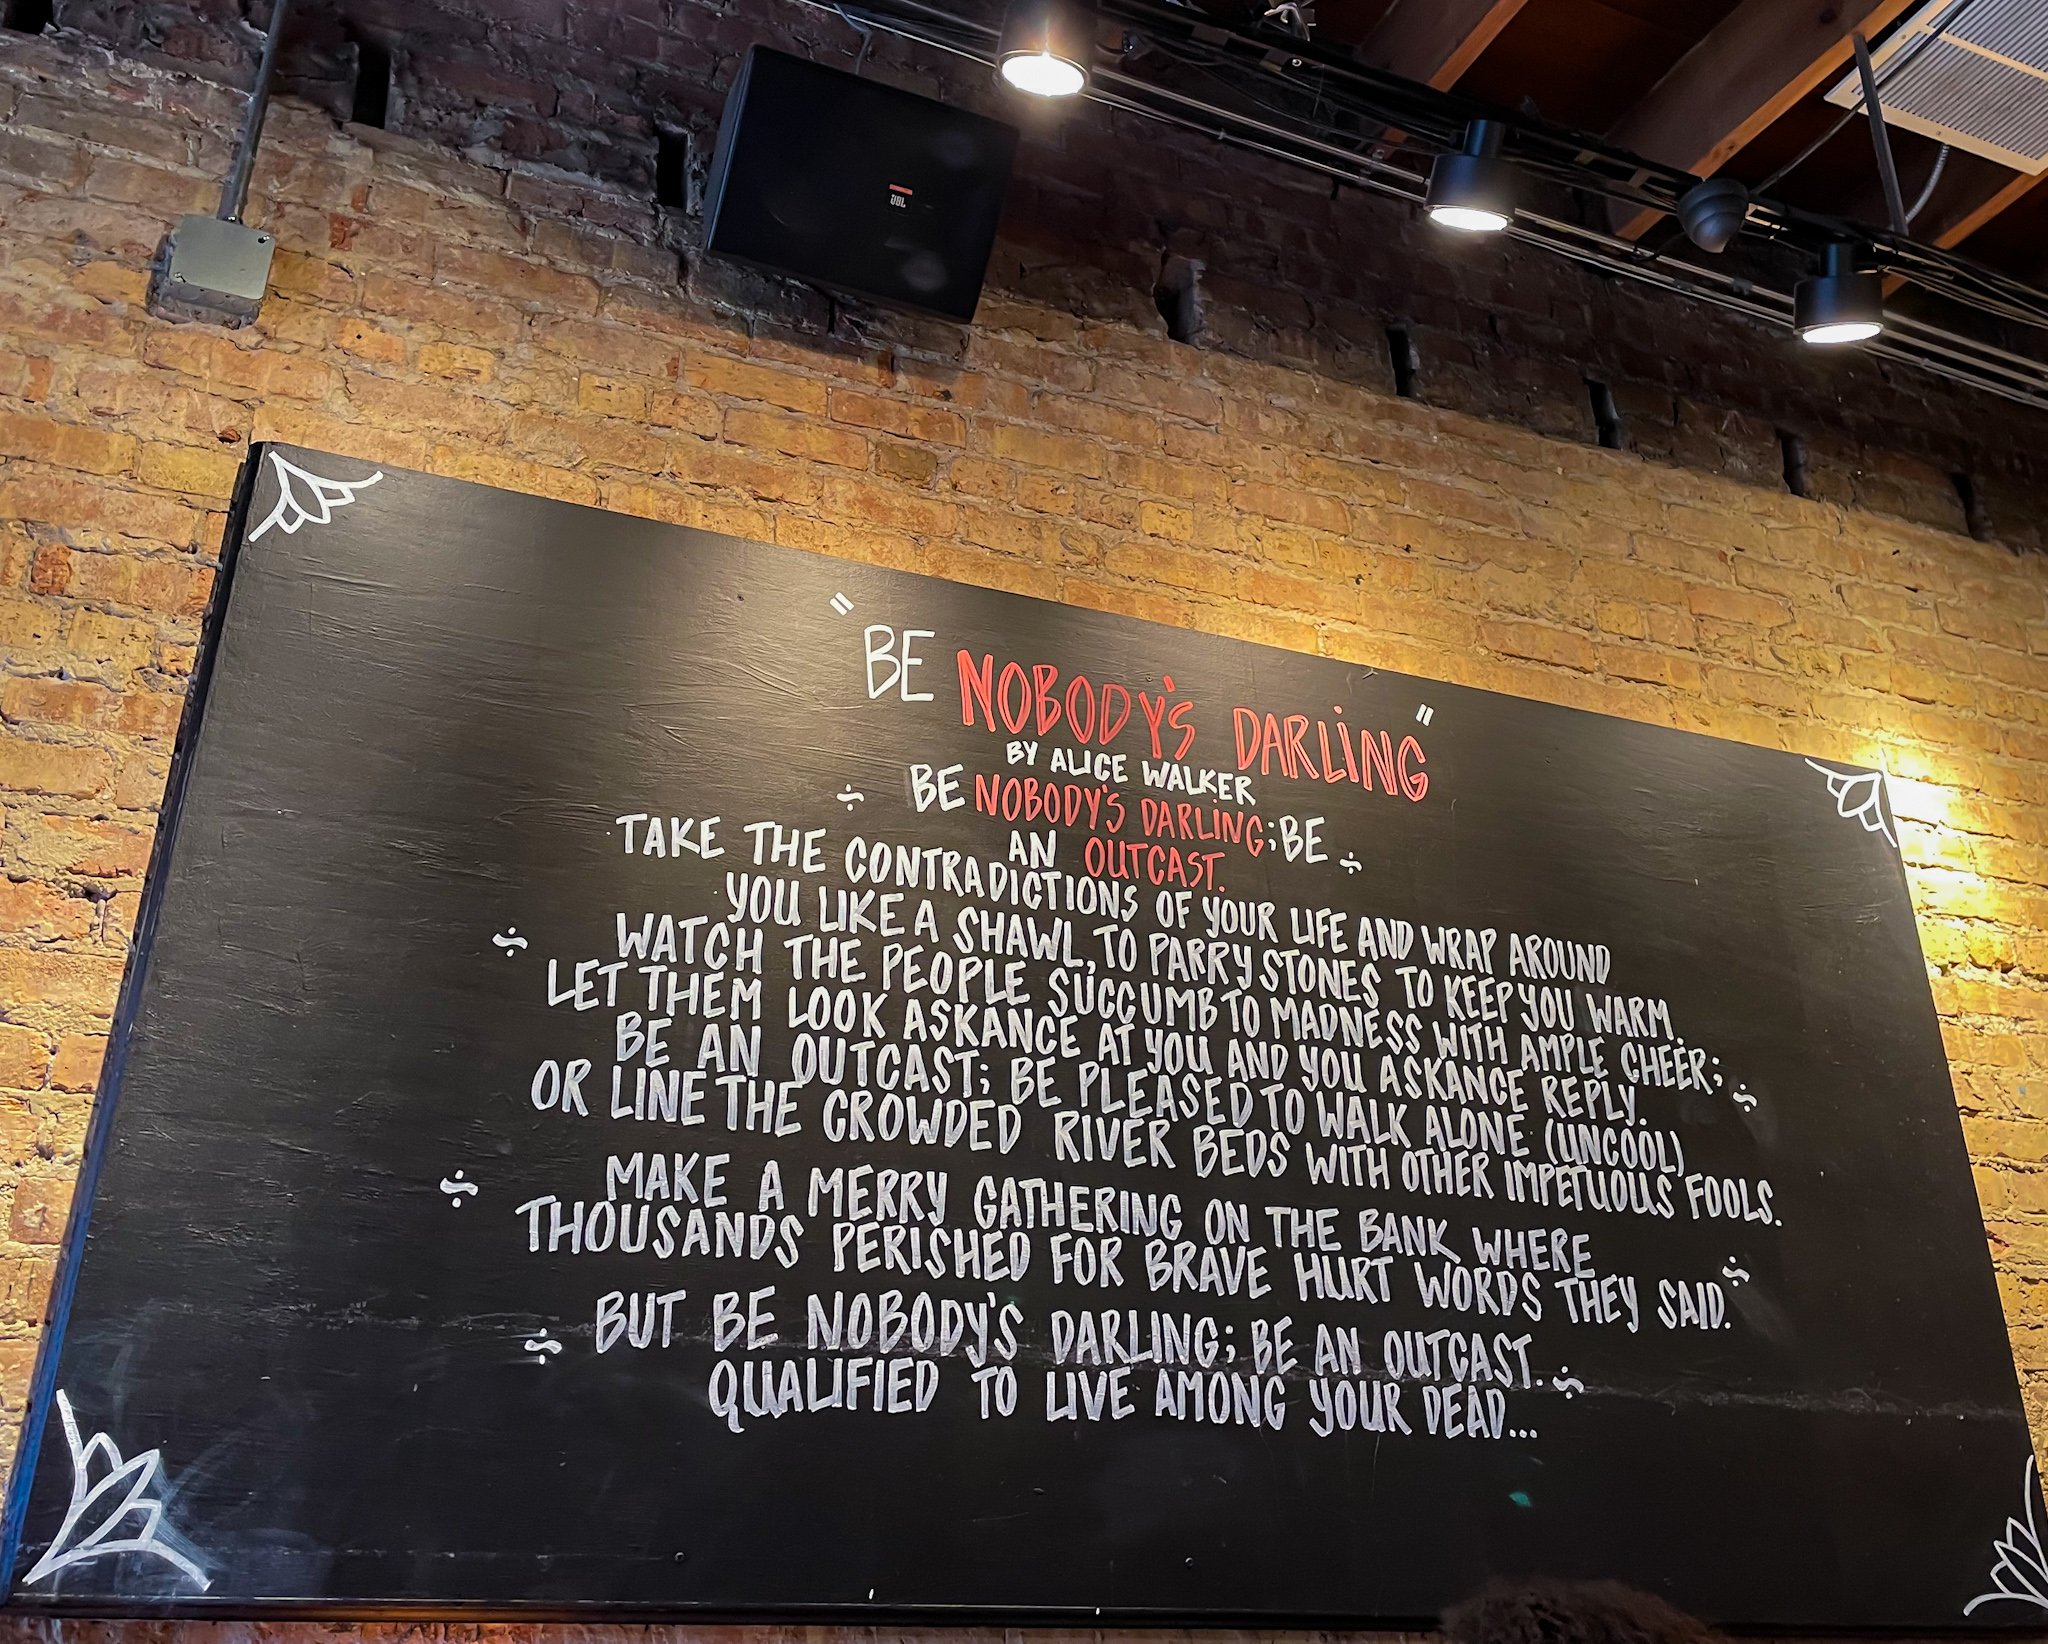 JBL
"BE NOBODY'S DARLING"
BY ALICE WALKER
BE NOBODY'S DARLING; BE
AN OUTCAST.
TAKE THE CONTRADICTIONS OF YOUR LIFE AND WRAP AROUND
YOU LIKE A SHAWL, TO PARRY STONES TO KEEP YOU WARM.
WATCH THE PEOPLE SUCCUMB TO MADNESS WITH AMPLE CHEER;
LET THEM LOOK ASKANCE AT YOU AND YOU ASKANCE REPLY.
BE AN OUTCAST; BE PLEASED TO WALK ALONE (UNCOOL)
OR LINE THE CROWDED RIVER BEDS WITH OTHER IMPETUOUS FOOLS.
MAKE A MERRY GATHERING ON THE BANK WHERE
THOUSANDS PERISHED FOR BRAVE HURT WORDS THEY SAID.
BUT BE NOBODY'S DARLING; BE AN OUTCAST.
QUALIFIED TO LIVE AMONG YOUR DEAD...